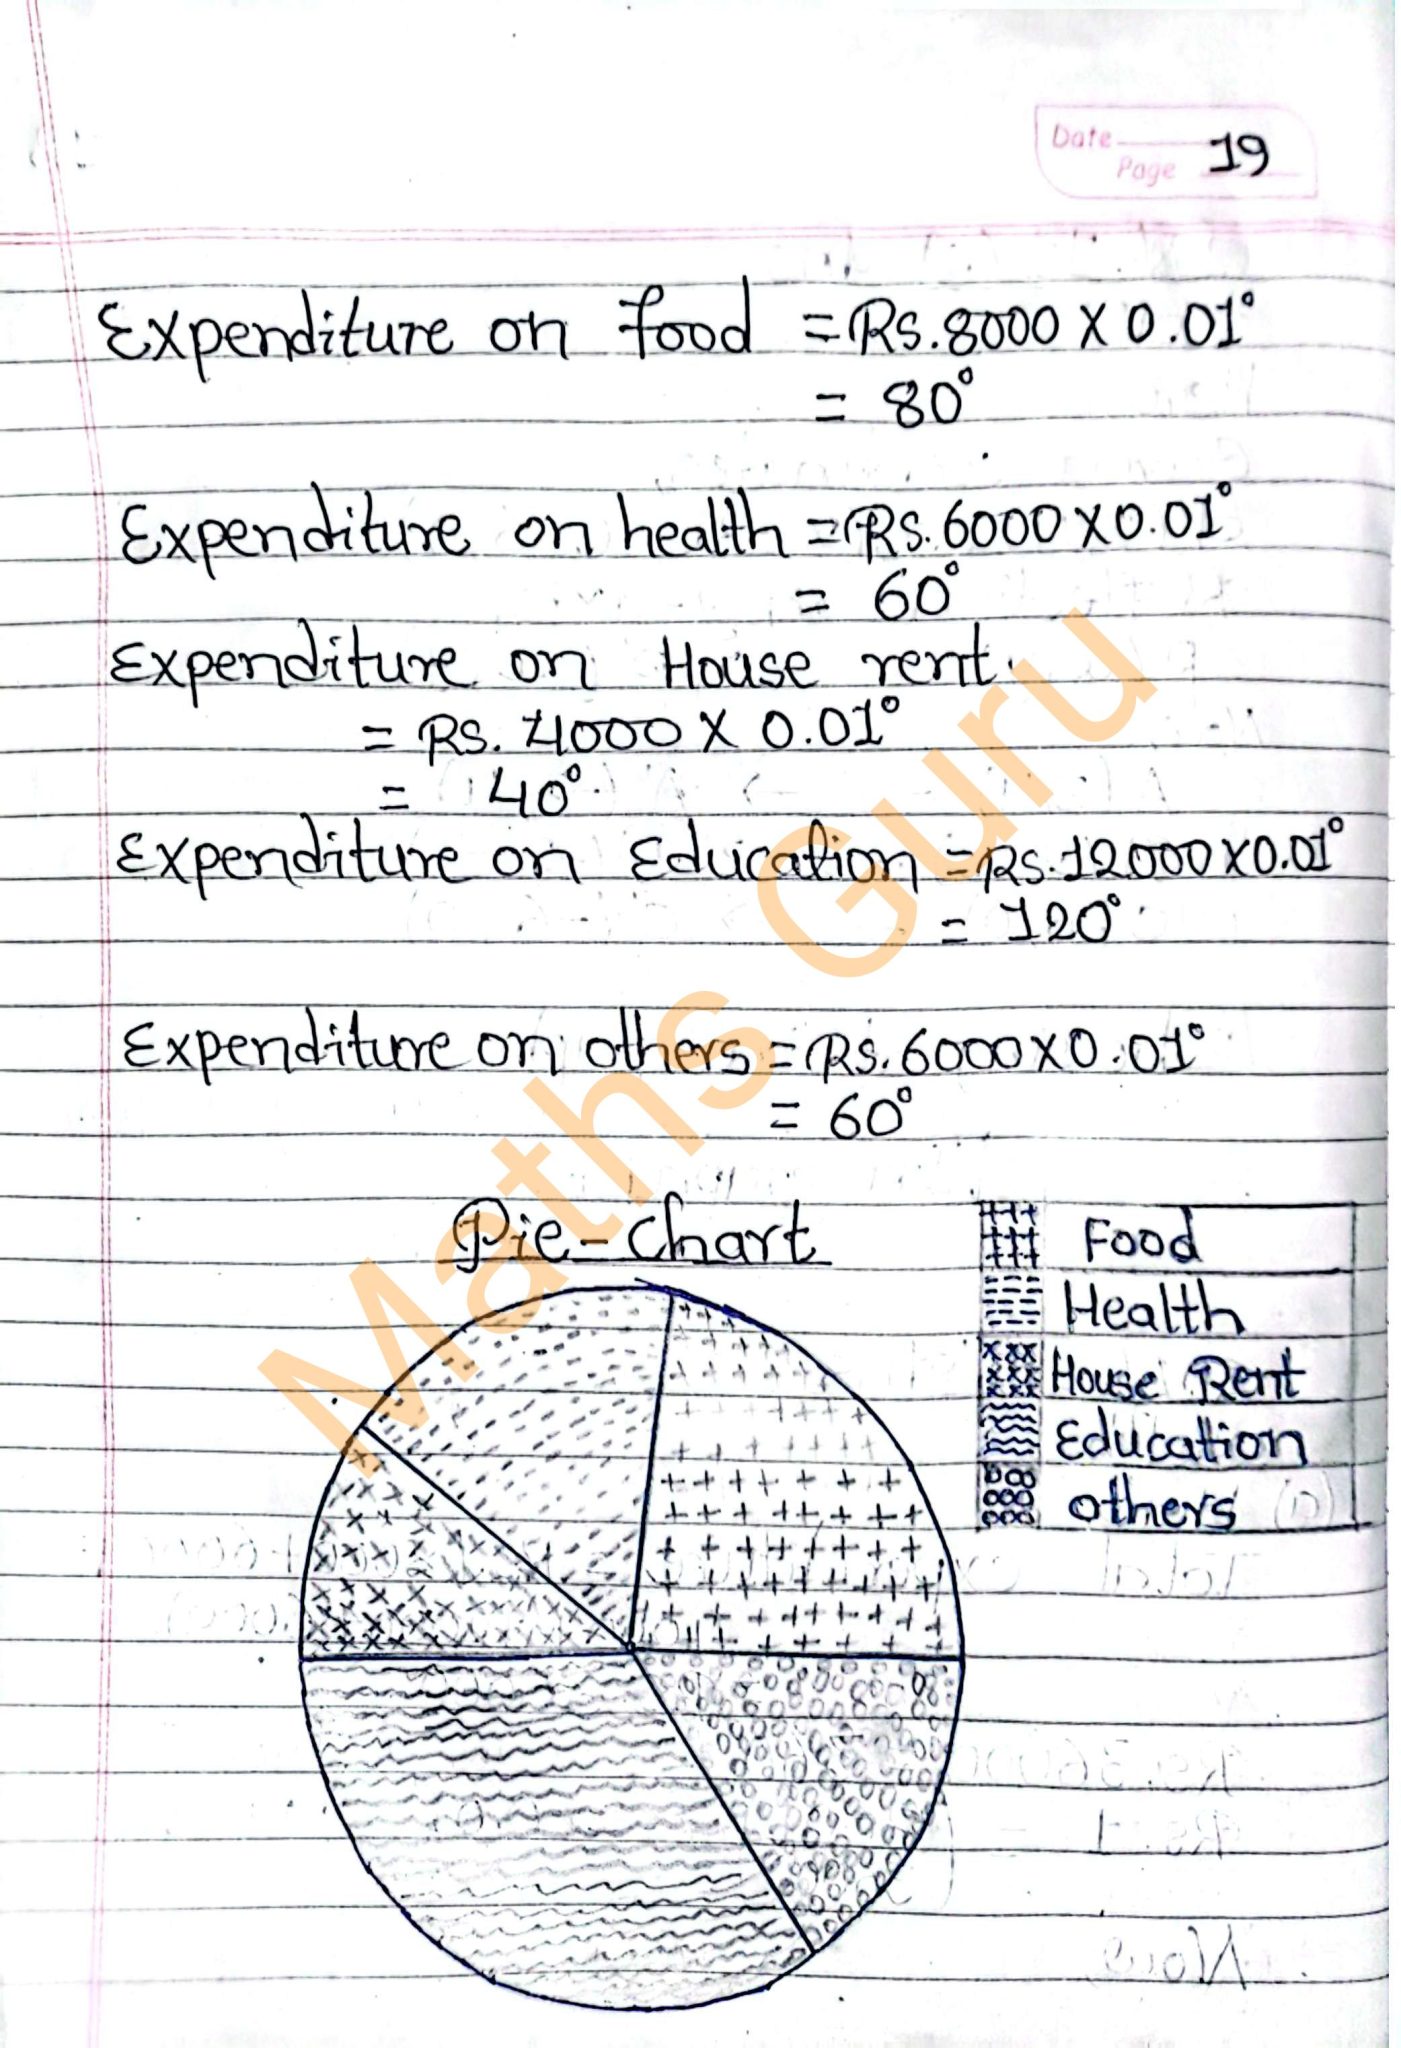 Date
Page 19
Expenditure on food = Rs.8000 X 0.01°
= 80°
Expenditure on health = Rs.6000 X0.01°
= 60°
Expenditure on House rent
= Rs. 4000 X 0.01°
= 40°
Expenditure on Education = Rs.12000 X0.01°
= 120°
Expenditure on others = Rs.6000 X0.01°
= 60°
Pie-Chart
Food
Health
House Rent
Education
others
Maths Guru